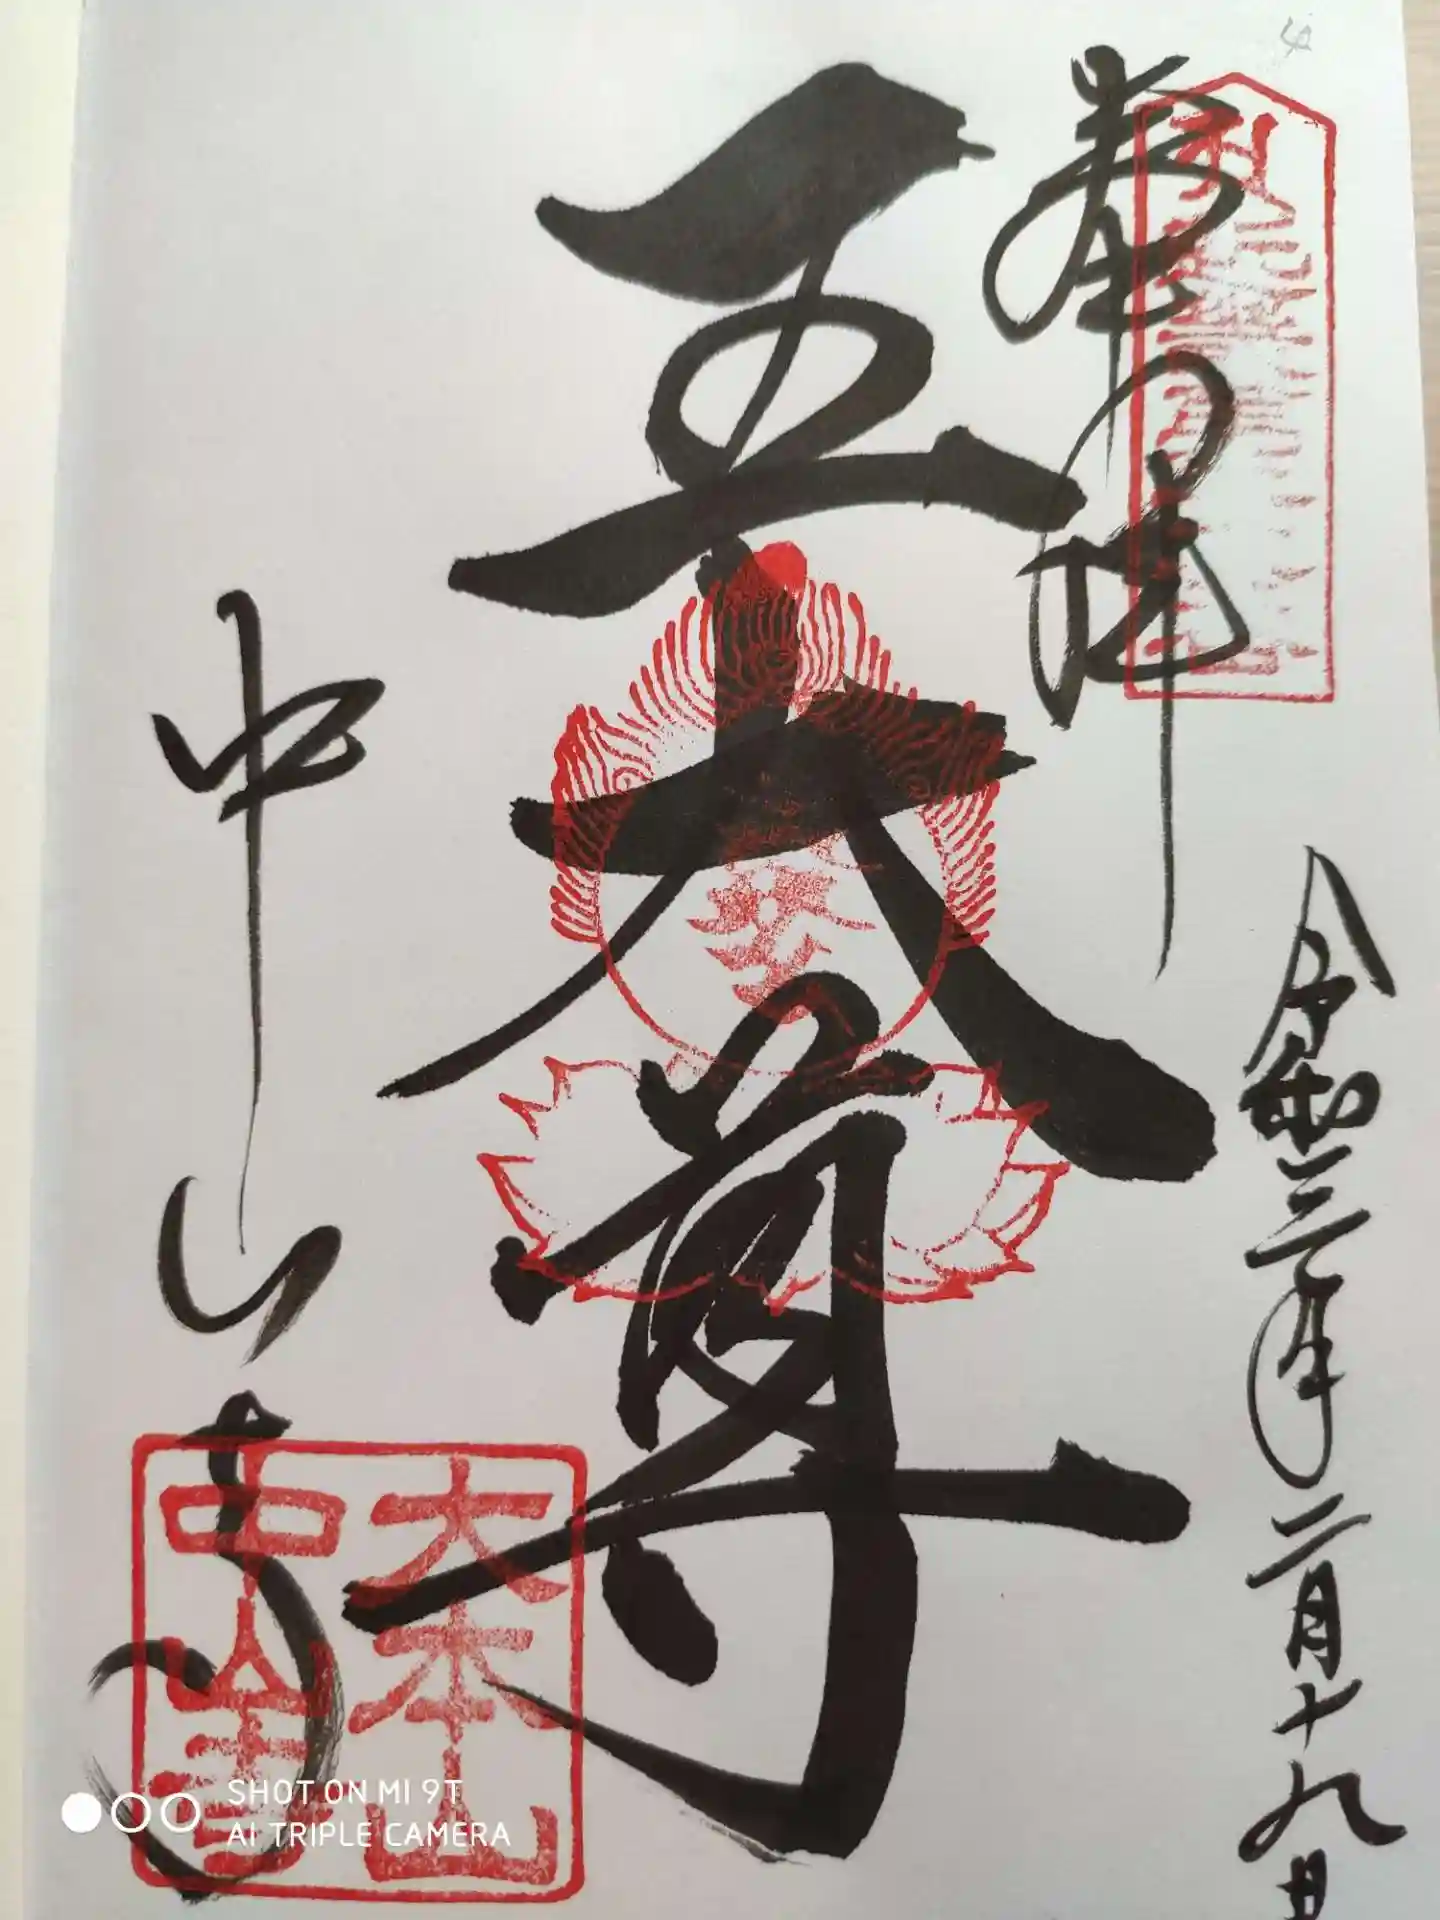 奉拝
令和三年二月十九日
五大尊
中山寺
大本山
中山寺
SHOT ON MI 9T
AI TRIPLE CAMERA